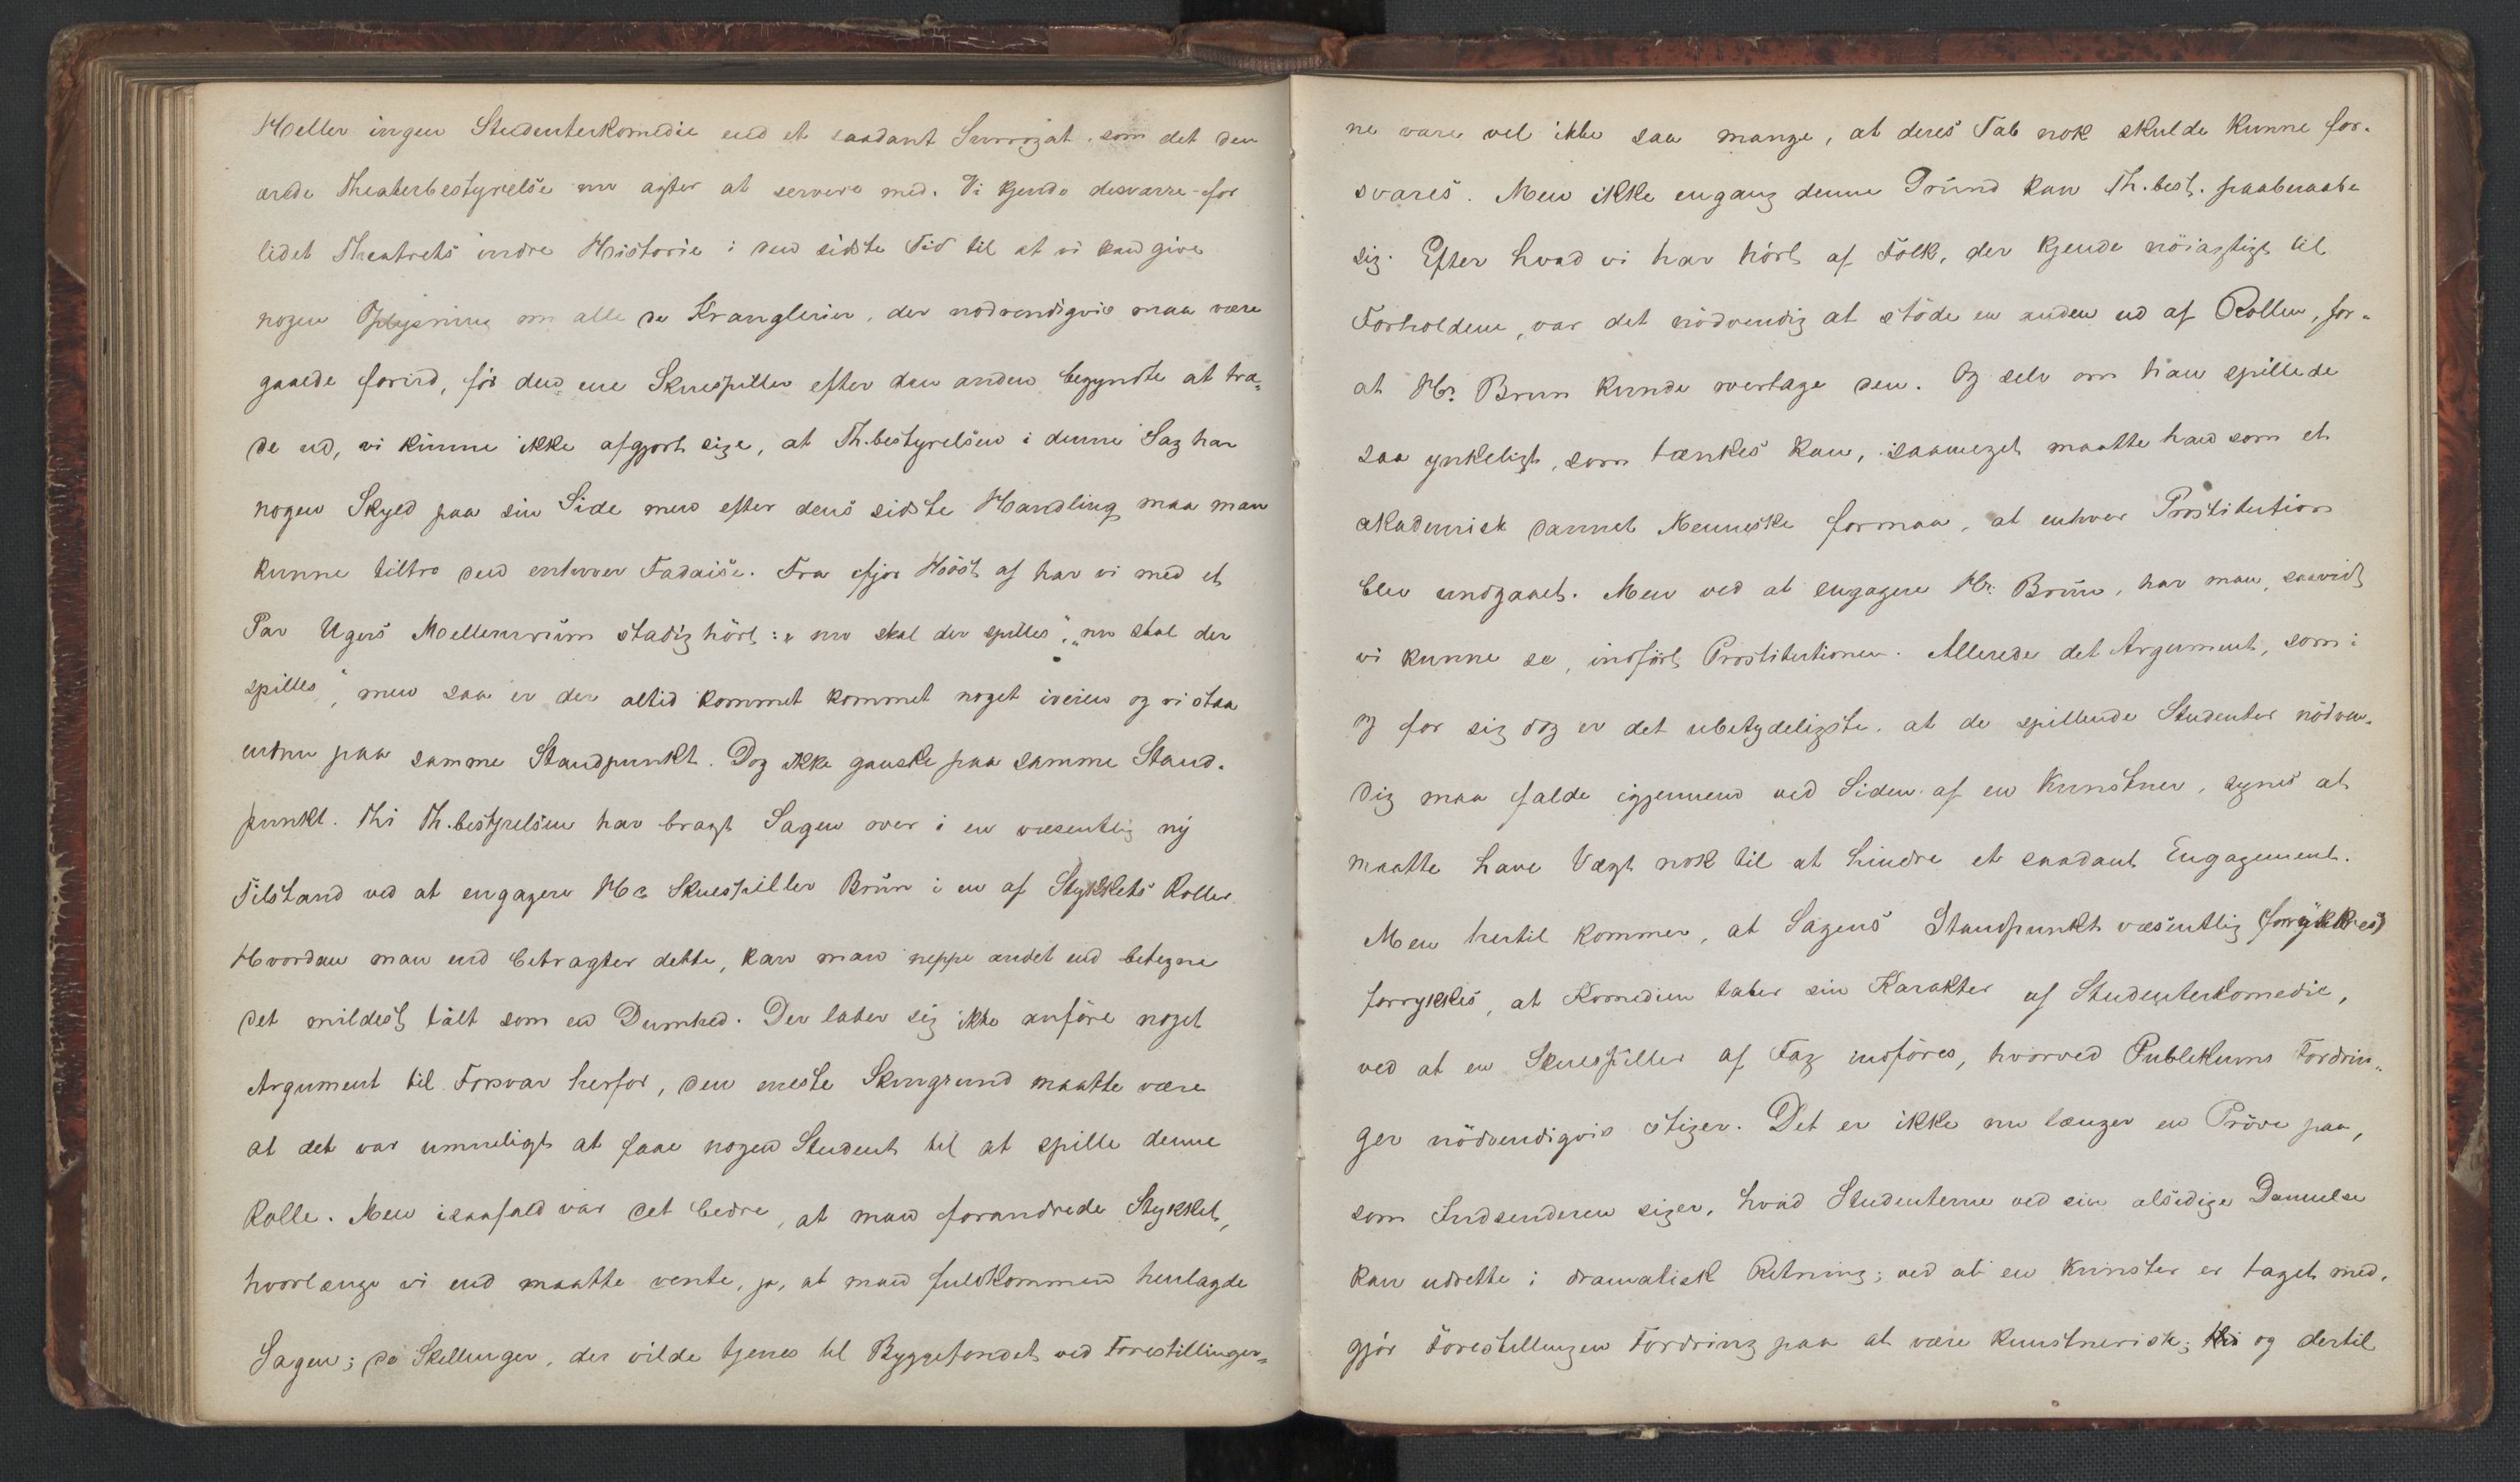 Heller ingen Studenterkomedie end et saadant Surrogat, som det den
ærede Theaterbestyrelse nu agter at servere med. Vi kjende desværre for
lidet Theatrets indre Historie i den sidste Tid til at vi kan give
nogen Oplysning om alle de Kranglerier, der nødvendigvis maa være
gaaede forud, før den ene Skuespiller efter den anden begyndte at træ-
de ud, vi kunne ikke afgjort sige, at Th.bestyrelsen i denne Sag har
nogen Skyld paa sin Side men efter dens sidste Handling maa man
kunne tiltro den enhver Fadaise. Fra ifjor Høst af har vi med et
Par Ugers Mellemrum stadig hört: „nu skal der spilles", „nu skal der
spilles", men saa er der altid kommet kommet noget iveien og vi staa
endnu paa samme Standpunkt. Dog ikke ganske paa samme Stand-
punkt. Thi Th.bestyrelsen har bragt Sagen over i en væsentlig ny
Tilstand ved at engagere Hr Skuespiller Brun i en af Stykkets Roller.
Hvordan man end betragter dette, kan man neppe andet end betegne
det mildest talt som en Dumhed. Der lader sig ikke anföre noget
Argument til Forsvar herfor, den eneste Skingrund maatte være
at det var umueligt at faae nogen Student til at spille denne
Rolle. Men isaafald var det bedre, at man forandrede Stykket,
hvorlænge vi end maatte vente, ja, at man fuldkommen henlagde
Sagen; de Skillinger, der vilde tjenes til Byggefondet ved Forestillinger-
ne vare vel ikke saa mange, at deres Tab nok skulde kunne for-
svares. Men ikke engang denne Grund kan Th.best. paaberaabe
sig. Efter hvad vi har hört af Folk, der kjende nöiagtigt til
Forholdene, var det nödvendig at støde en anden ud af Rollen, for-
at Hr. Brun kunde overtage den. Og selv om han spillede
saa ynkeligt, som tænkes kan, saameget maatte han som et
akademisk dannet Menneske formaa, at enhver Prostitution
blev undgaaet. Men ved at engagere Hr. Brun, har man, saavidt
vi kunne se, indfört Prostitutionen. Allerede det Argument, som i
og for sig dog er det ubetydeligste, at de spillende Studenter nödven-
dig maa falde igjennem ved Siden af en Kunstner, synes at
maatte have Vægt nok til at hindre et saadant Engagement.
Men hertil kommer, at Sagens Standpunkt væsentlig (forrykkes)
forrykkes, at Komedien taber sin Karakter af Studenterkomedie,
ved at en Skuespiller af Fag indföres, hvorved Publikums Fordrin-
ger nödvendigvis stiger. Det er ikke nu længer en Pröve paa,
som Indsenderen siger, hvad Studenterne ved sin alsidige Dannelse
kan udrette i dramatisk Retning; ved at en Kunstner er taget med,
gjör Forestillingen Fordring paa at være kunstnerisk; thi og dertil